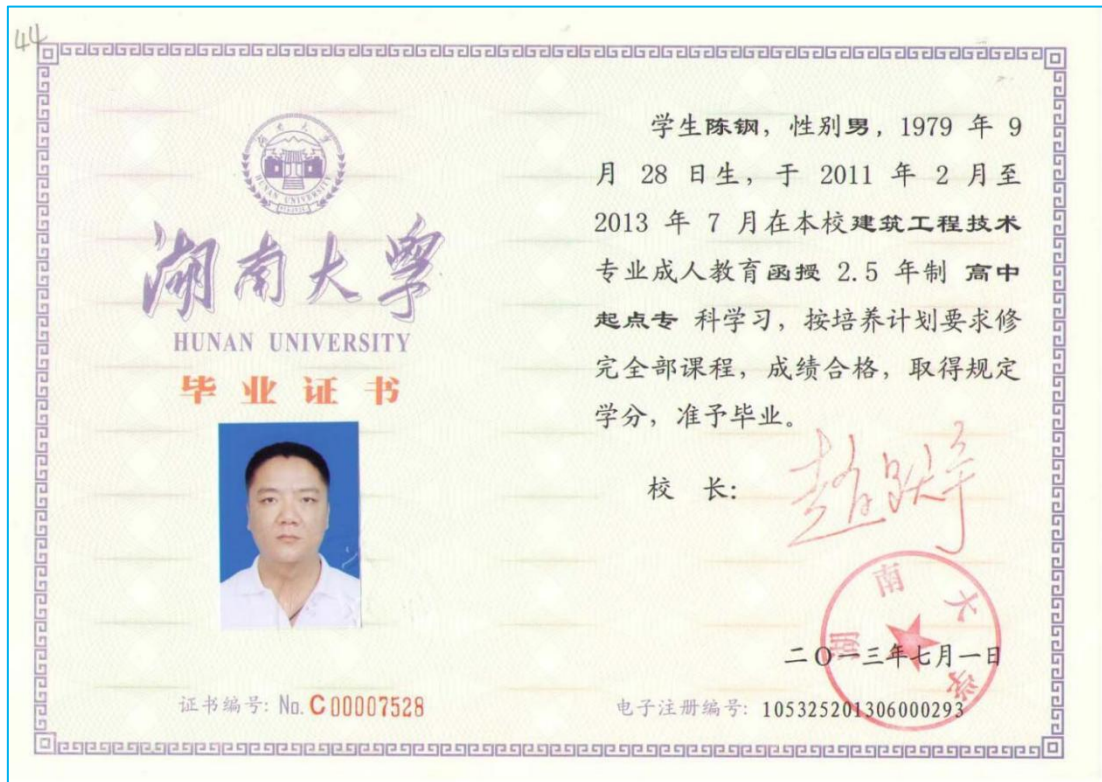 44
湖南大学
HUNAN UNIVERSITY
湖南大学
HUNAN UNIVERSITY
毕业证书
证书编号: No. C00007528
学生陈钢，性别男，1979 年 9
月 28 日生，于 2011 年 2 月至
2013 年 7 月在本校建筑工程技术
专业成人教育函授 2.5 年制 高中
起点专 科学习，按培养计划要求修
完全部课程，成绩合格，取得规定
学分，准予毕业。
校 长:
赵跃宇
湖南大学
二〇一三年七月一日
电子注册编号: 105325201306000293